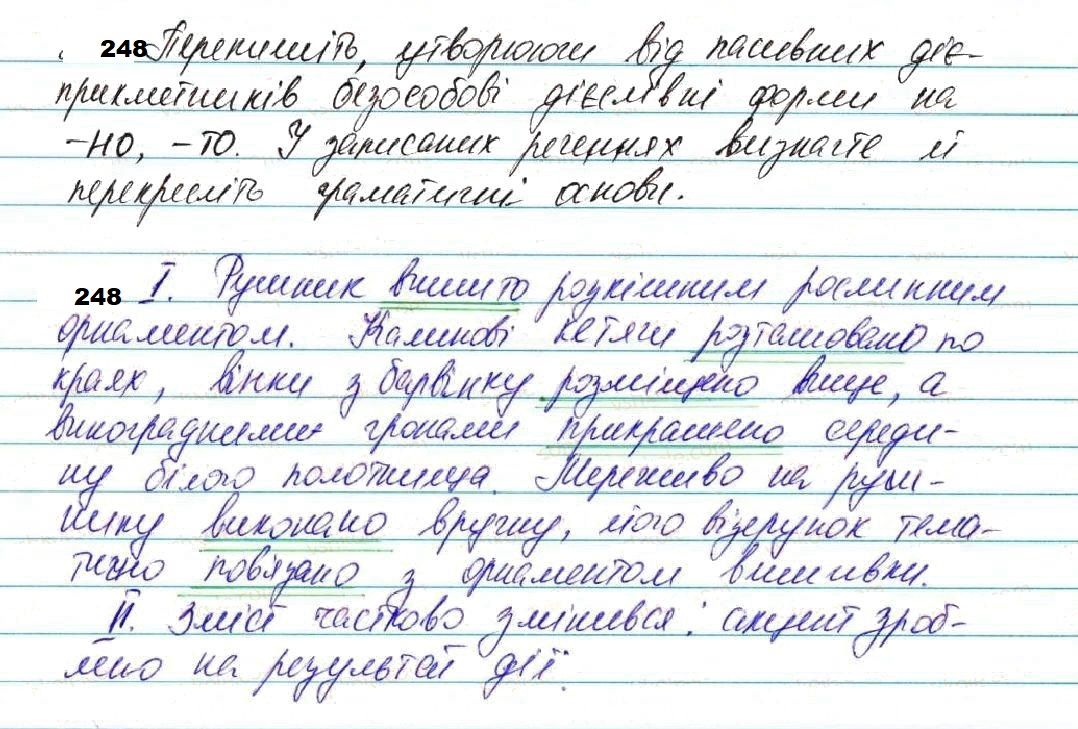 248 Перепишіть, утворюючи від пасивних діє-
прикметників безособові дієслівні форми на
-но, -то. У записаних реченнях визначте й
перекресліть граматичні основи.
248 І. Рушник вишито розкішним рослинним
орнаментом. Калинові кетяги розташовано по
краях, вінки з барвінку розміщено вище, а
виноградними гронами прикрашено середи-
ну білого полотнища. Мереживо на руш-
нику виконано вручну, його візерунок тема-
тично пов'язано з орнаментом вишивки.
ІІ. Зміст частково змінився: акцент зроб-
лено на результаті дії.